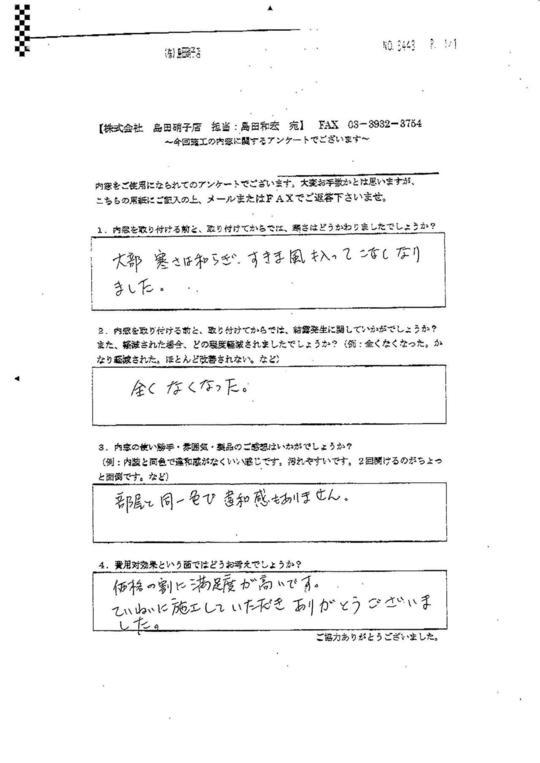 (有)島田硝子店 NO. 3443 P. 1/1
【株式会社 島田硝子店 担当:島田和宏 宛】 FAX 03-3932-3754
～今回施工の内窓に関するアンケートでございます～
内窓をご使用になられてのアンケートでございます。大変お手数かとは思いますが、
こちらの用紙にご記入の上、メールまたはFAXでご返答下さいませ。
1．内窓を取り付ける前と、取り付けてからでは、寒さはどうかわりましたでしょうか?
大部 寒さは和らぎ、すきま風も入ってこなくなり
ました。
2．内窓を取り付ける前と、取り付けてからでは、結露発生に関していかがでしょうか?
また、軽減された場合、どの程度軽減されましたでしょうか?(例:全くなくなった。か
なり軽減された。ほとんど改善されない。など)
全く なくなった。
3．内窓の使い勝手・雰囲気・製品のご感想はいかがでしょうか?
(例:内装と同色で違和感がなくいい感じです。汚れやすいです。2回開けるのがちょっ
と面倒です。など)
部屋と同一色で違和感もありません。
4．費用対効果という面ではどうお考えでしょうか?
価格の割に満足度が高いです。
ていねいに施工していただき ありがとうございま
した。
ご協力ありがとうございました。